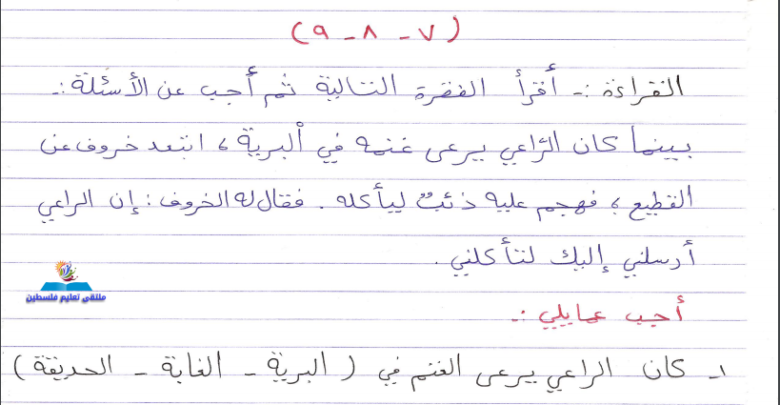 (٧ - ٨ - ٩)
القراءة :- أقرأ الفقرة التالية ثم أجب عن الأسئلة :-
بينما كان الراعي يرعى غنمه في البرية ، ابتعد خروف عن
القطيع ، فهجم عليه ذئبٌ ليأكله . فقال له الخروف : إن الراعي
أرسلني إليك لتأكلني .
ملتقى تعليم فلسطين
أجب عمايلي :-
١- كان الراعي يرعى الغنم في ( البرية - الغابة - الحديقة )